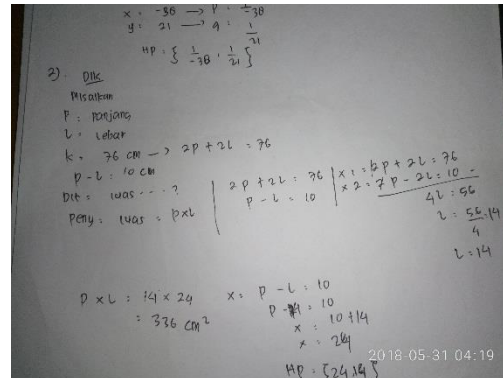 x = -38 → p = 1/-38
y = 21 → q = 1/21
HP = { 1/-38 , 1/21 }
2). Dik
Misalkan
P = panjang
l = lebar
k = 76 cm → 2P + 2l = 76
P - l = 10 cm
Dit = luas ... ?
Peny = luas = p x l
2P + 2l = 76 | x 1 = 2P + 2l = 76
P - l = 10 | x 2 = 2P - 2l = 10 -
4l = 56
l = 56/4 = 14
l = 14
P x l = 14 x 24
= 336 cm²
x = P - l = 10
P - 14 = 10
x = 10 + 14
x = 24
HP = {24, 14}
2018-05-31 04:19